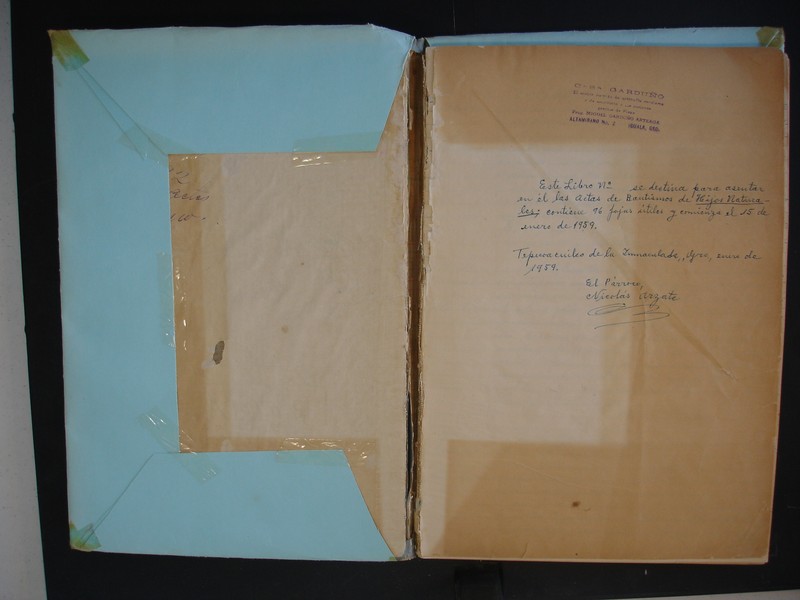 CASA GARDUÑO
ALTAMIRANO No. 2 IGUALA, GRO.
Este Libro N° se destina para asentar
en él las Actas de Bautismos de Hijos Natura-
les; contiene 96 fojas útiles y comienza el 15 de
enero de 1959.
de la Inmaculada, Gro, enero de
1959.
El Párroco,
Nicolás Arzate